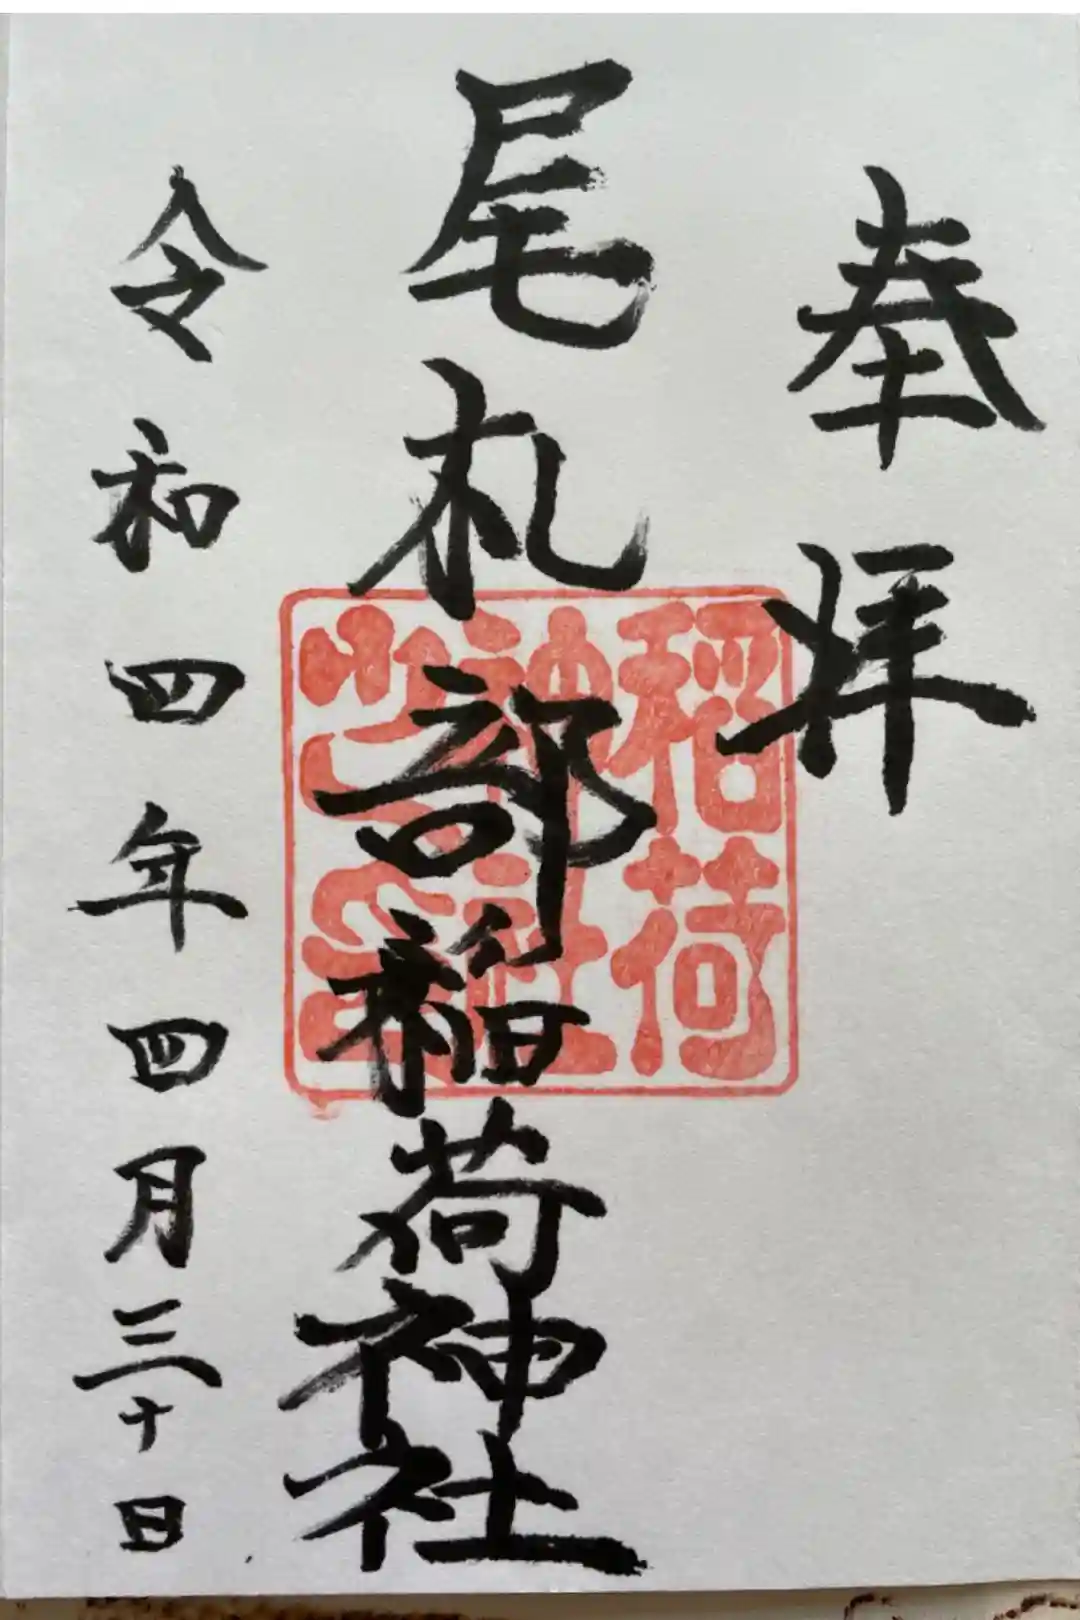 奉拝
尾札部稲荷神社
稲荷
神社
之印
令和四年四月三十日